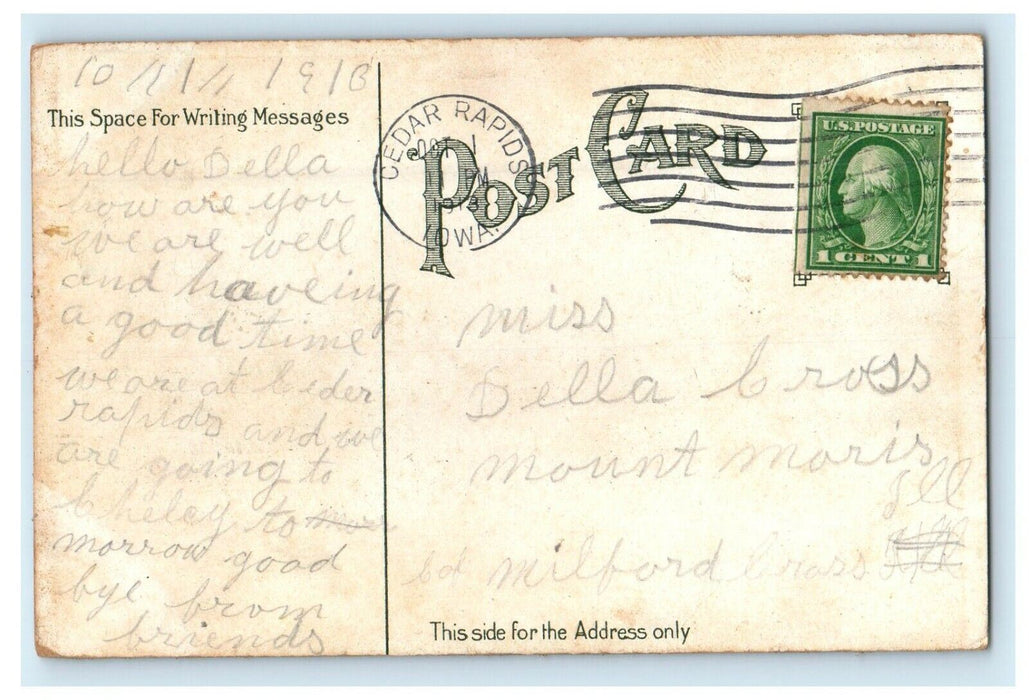 10/1/1913
This Space For Writing Messages
hello Della
how are you
we are well
and haveing
a good time
we are at Ceder
rapids and we
are going to
Cheley to
morrow good
bye from
friends
CEDAR RAPIDS
OCT 1
PM
1913
IOWA.
POST CARD
U.S. POSTAGE
1 CENT 1
miss
Della Cross
mount moris
Ill
Milford Cross
This side for the Address only